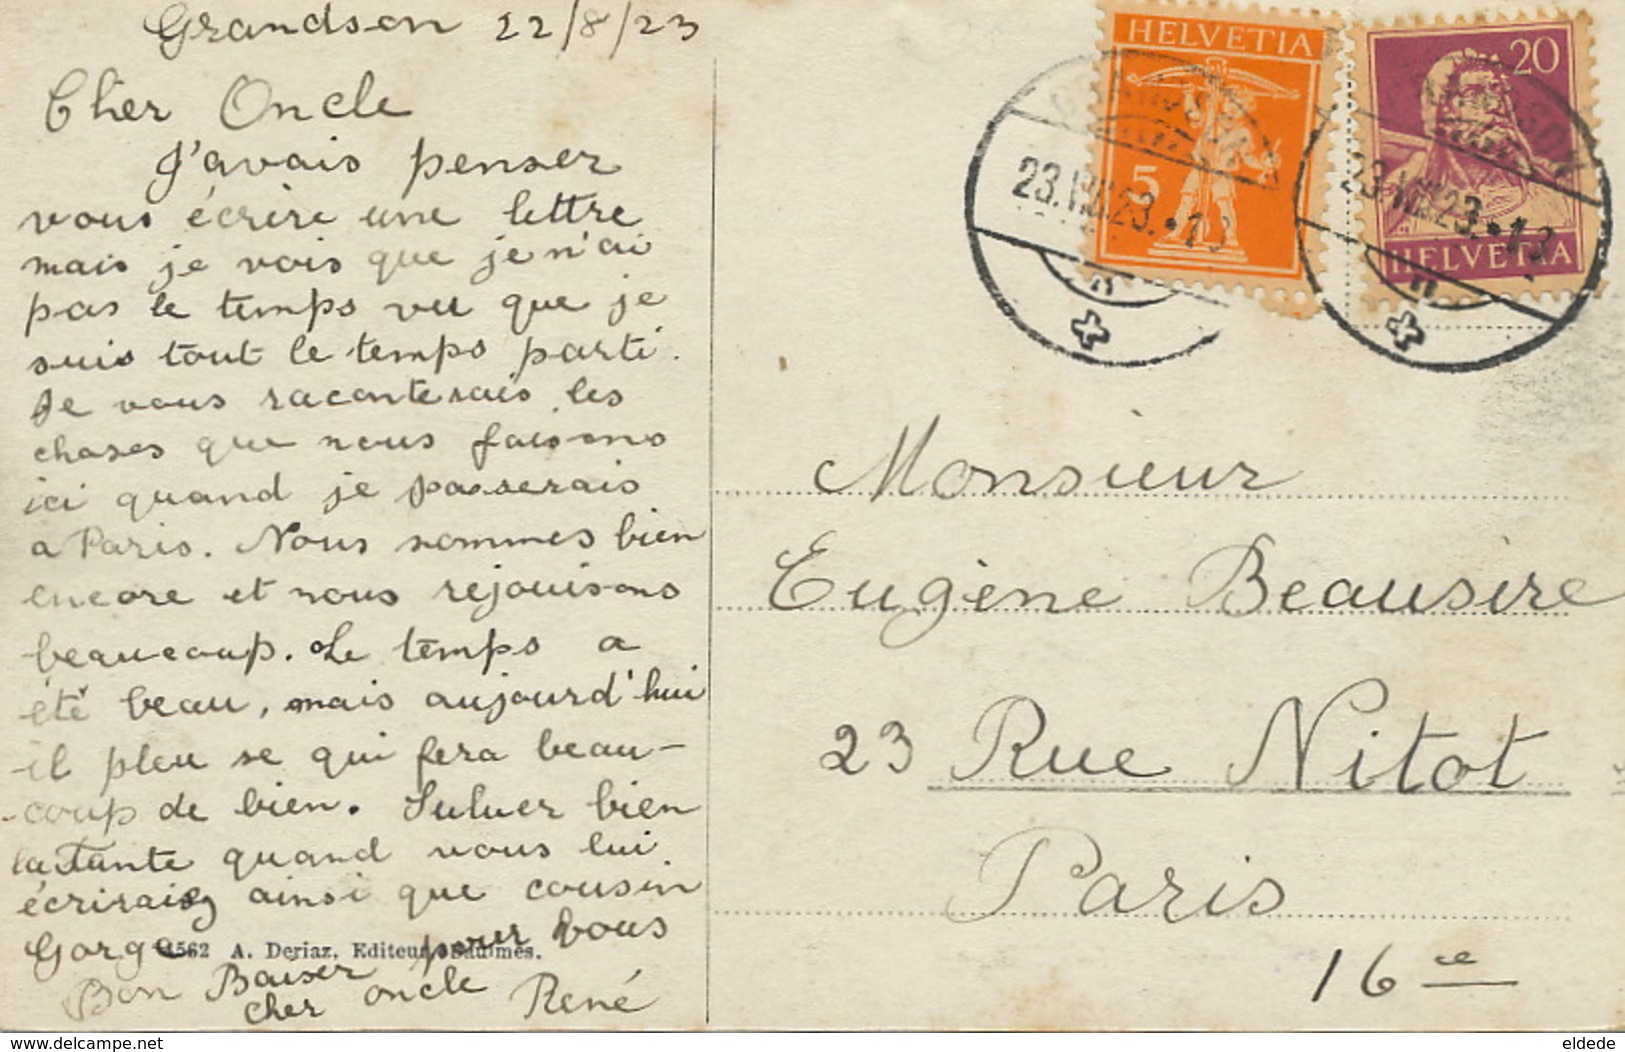 Grandson 22/8/23
Cher Oncle
J'avais penser
vous écrire une lettre
mais je vois que je n'ai
pas le temps vu que je
suis tout le temps parti.
Je vous raconterais les
choses que nous faisons
ici quand je passerais
a Paris. Nous sommes bien
encore et nous rejouisons
beaucoup. Le temps a
été beau, mais aujourd'hui
il pleu se qui fera beau-
-coup de bien. Saluer bien
la Tante quand vous lui
écriraiz ainsi que cousin
Gorge
4562 A. Deriaz, Editeur, Baulmes.
Bon Baiser pour vous
cher oncle René
HELVETIA
5
20
HELVETIA
GRANDSON
23.VIII.23.•13
GRANDSON
23.VIII.23.•13
Monsieur
Eugène Beausire
23 Rue Nitot
Paris
16ce
eldede - www.delcampe.net